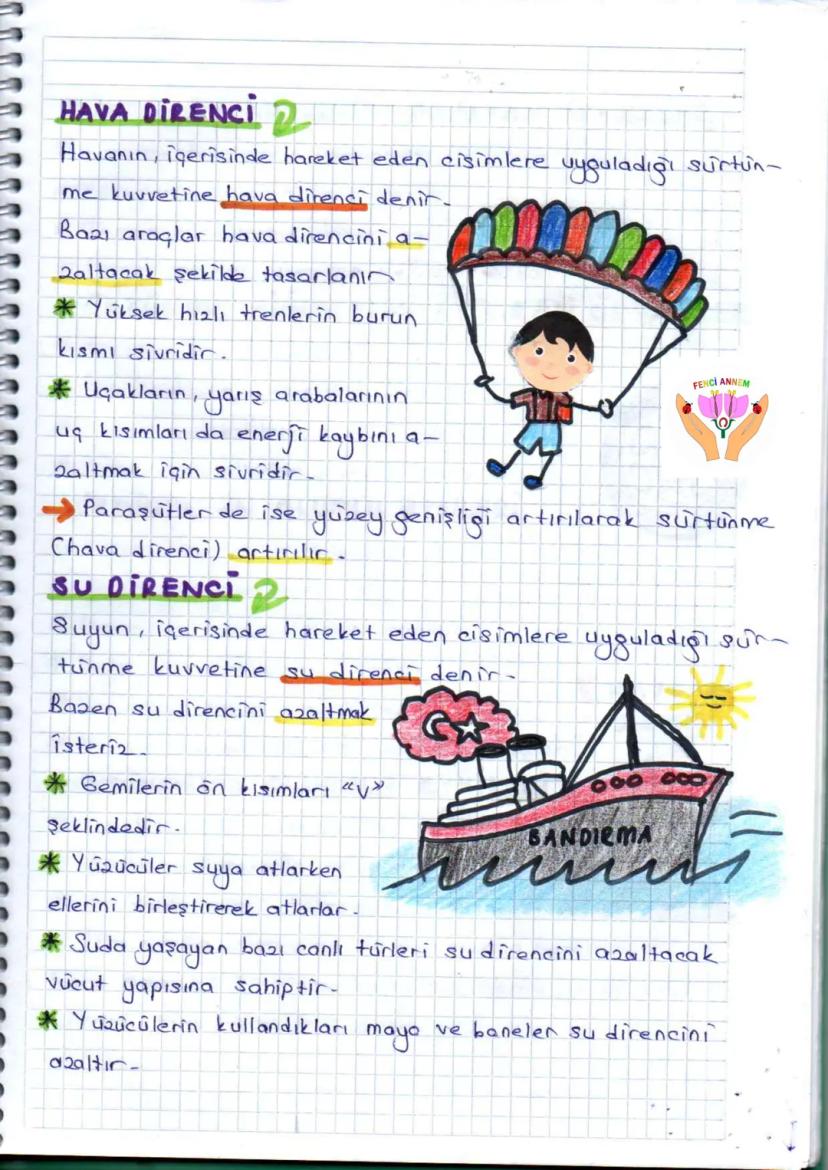 HAVA DİRENCİ
Havanın, içerisinde hareket eden cisimlere uyguladığı sürtün-
me kuvvetine hava direnci denir.
Bazı araçlar hava direncini a-
zaltacak şekilde tasarlanır
* Yüksek hızlı trenlerin burun
kısmı sivridir.
FENCİ ANNEM
* Uçakların, yarış arabalarının
uç kısımları da enerji kaybını a-
zaltmak için sivridir.
→ Paraşütlerde ise yüzey genişliği artırılarak sürtünme
(hava direnci) artırılır.
SU DİRENCİ
Suyun, içerisinde hareket eden cisimlere uyguladığı sür-
tünme kuvvetine su direnci denir.
Bazen su direncini azaltmak
isteriz.
* Gemilerin ön kısımları "V"
şeklindedir.
BANDIRMA
* Yüzücüler suya atlarken
ellerini birleştirerek atlarlar.
* Suda yaşayan bazı canlı türleri su direncini azaltacak
vücut yapısına sahiptir.
* Yüzücülerin kullandıkları mayo ve baneler su direncini
azaltır.